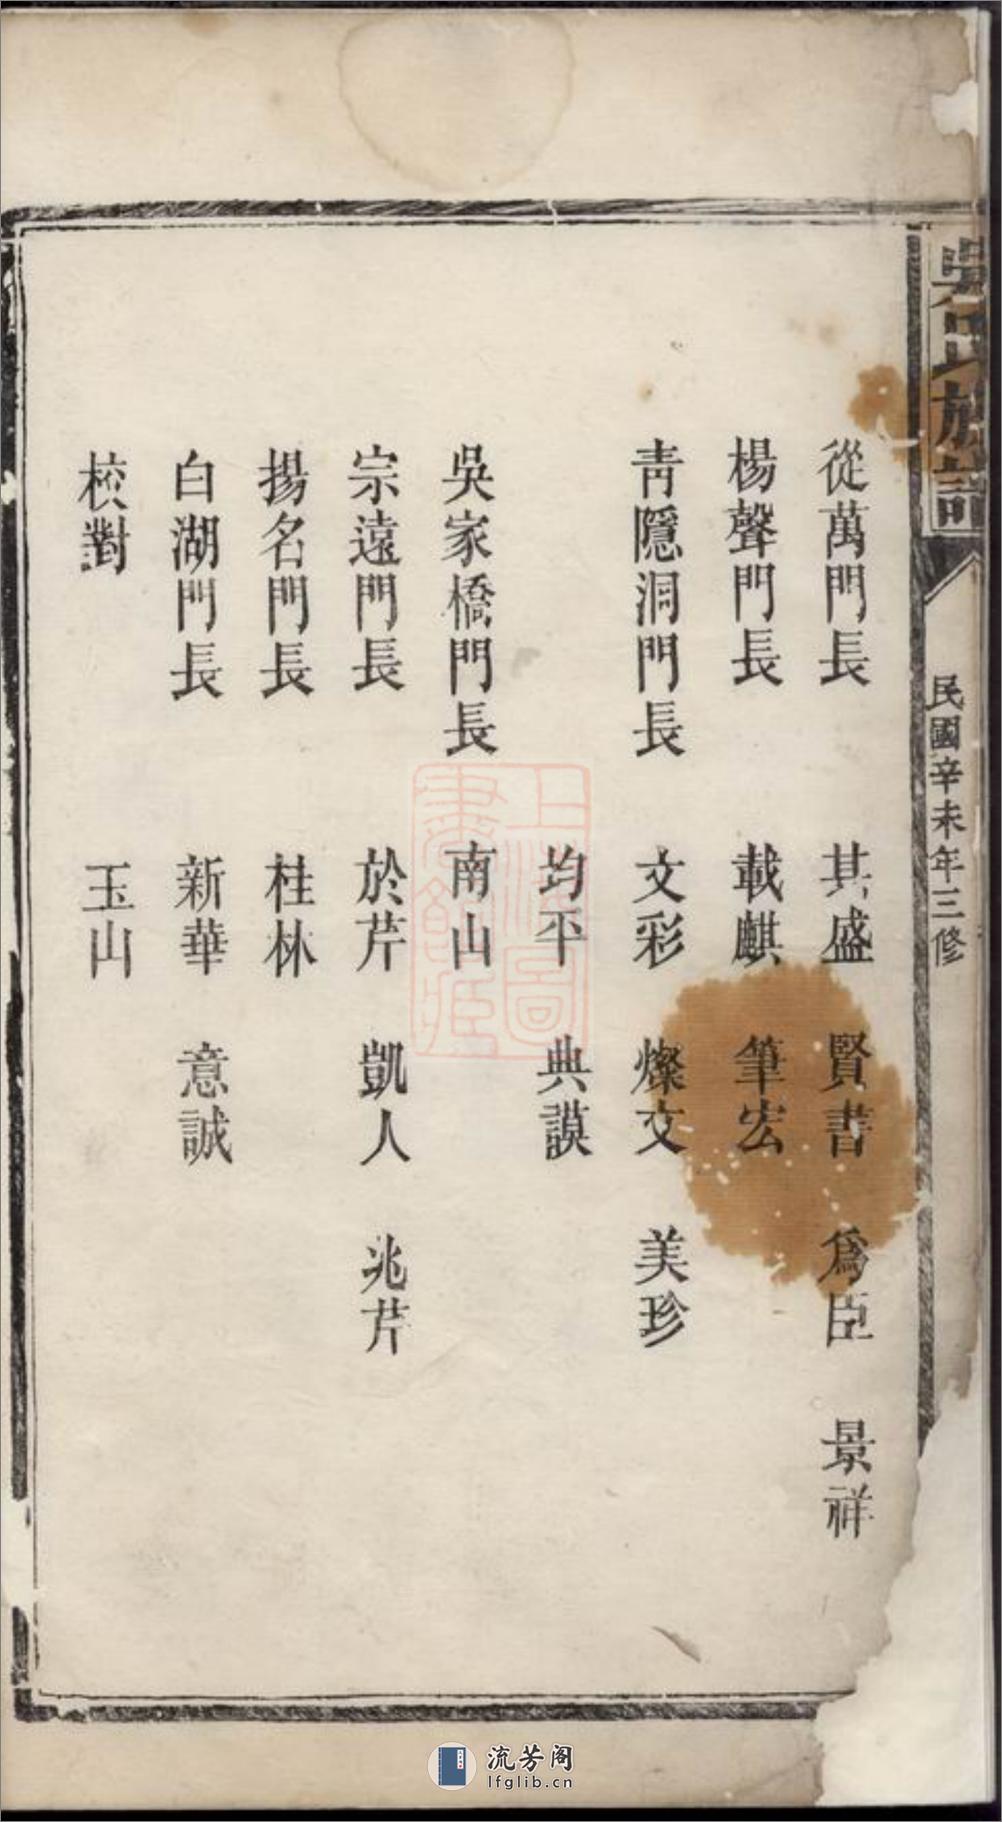 吳氏族譜
民國辛未年三修
從萬門長 其盛 賢書 爲臣 景祥
楊聲門長 載麒 筆宏
靑隱洞門長 文彩 燦文 美珍
均平 典謨
吳家橋門長 南山
宗遠門長 於芹 凱人 兆芹
揚名門長 桂林
白湖門長 新華 意誠
校對 玉山
上海圖書館藏
流芳阁
lfglib.cn